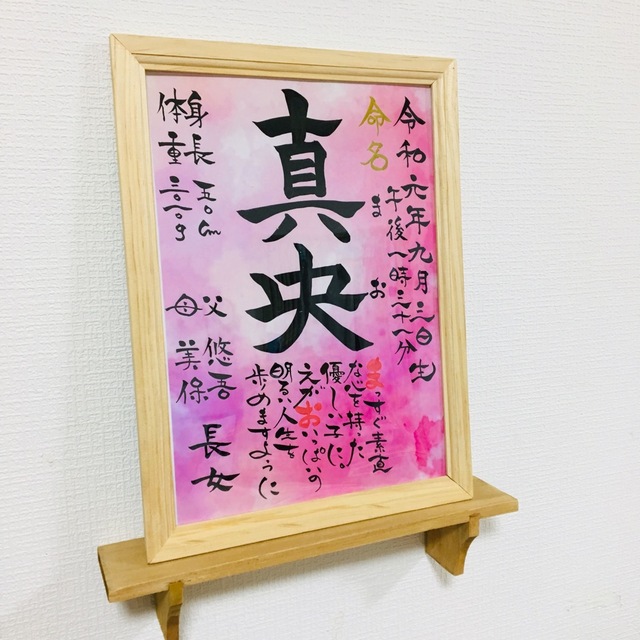 令和元年九月三日生
午後一時三十一分
命名
まお
真央
まっすぐ素直
な心を持った
優しい子に。
えがおいっぱいの
明るい人生を
歩めますように
身長 五〇cm
体重 三〇一〇g
父 悠吾
母 美保
長女